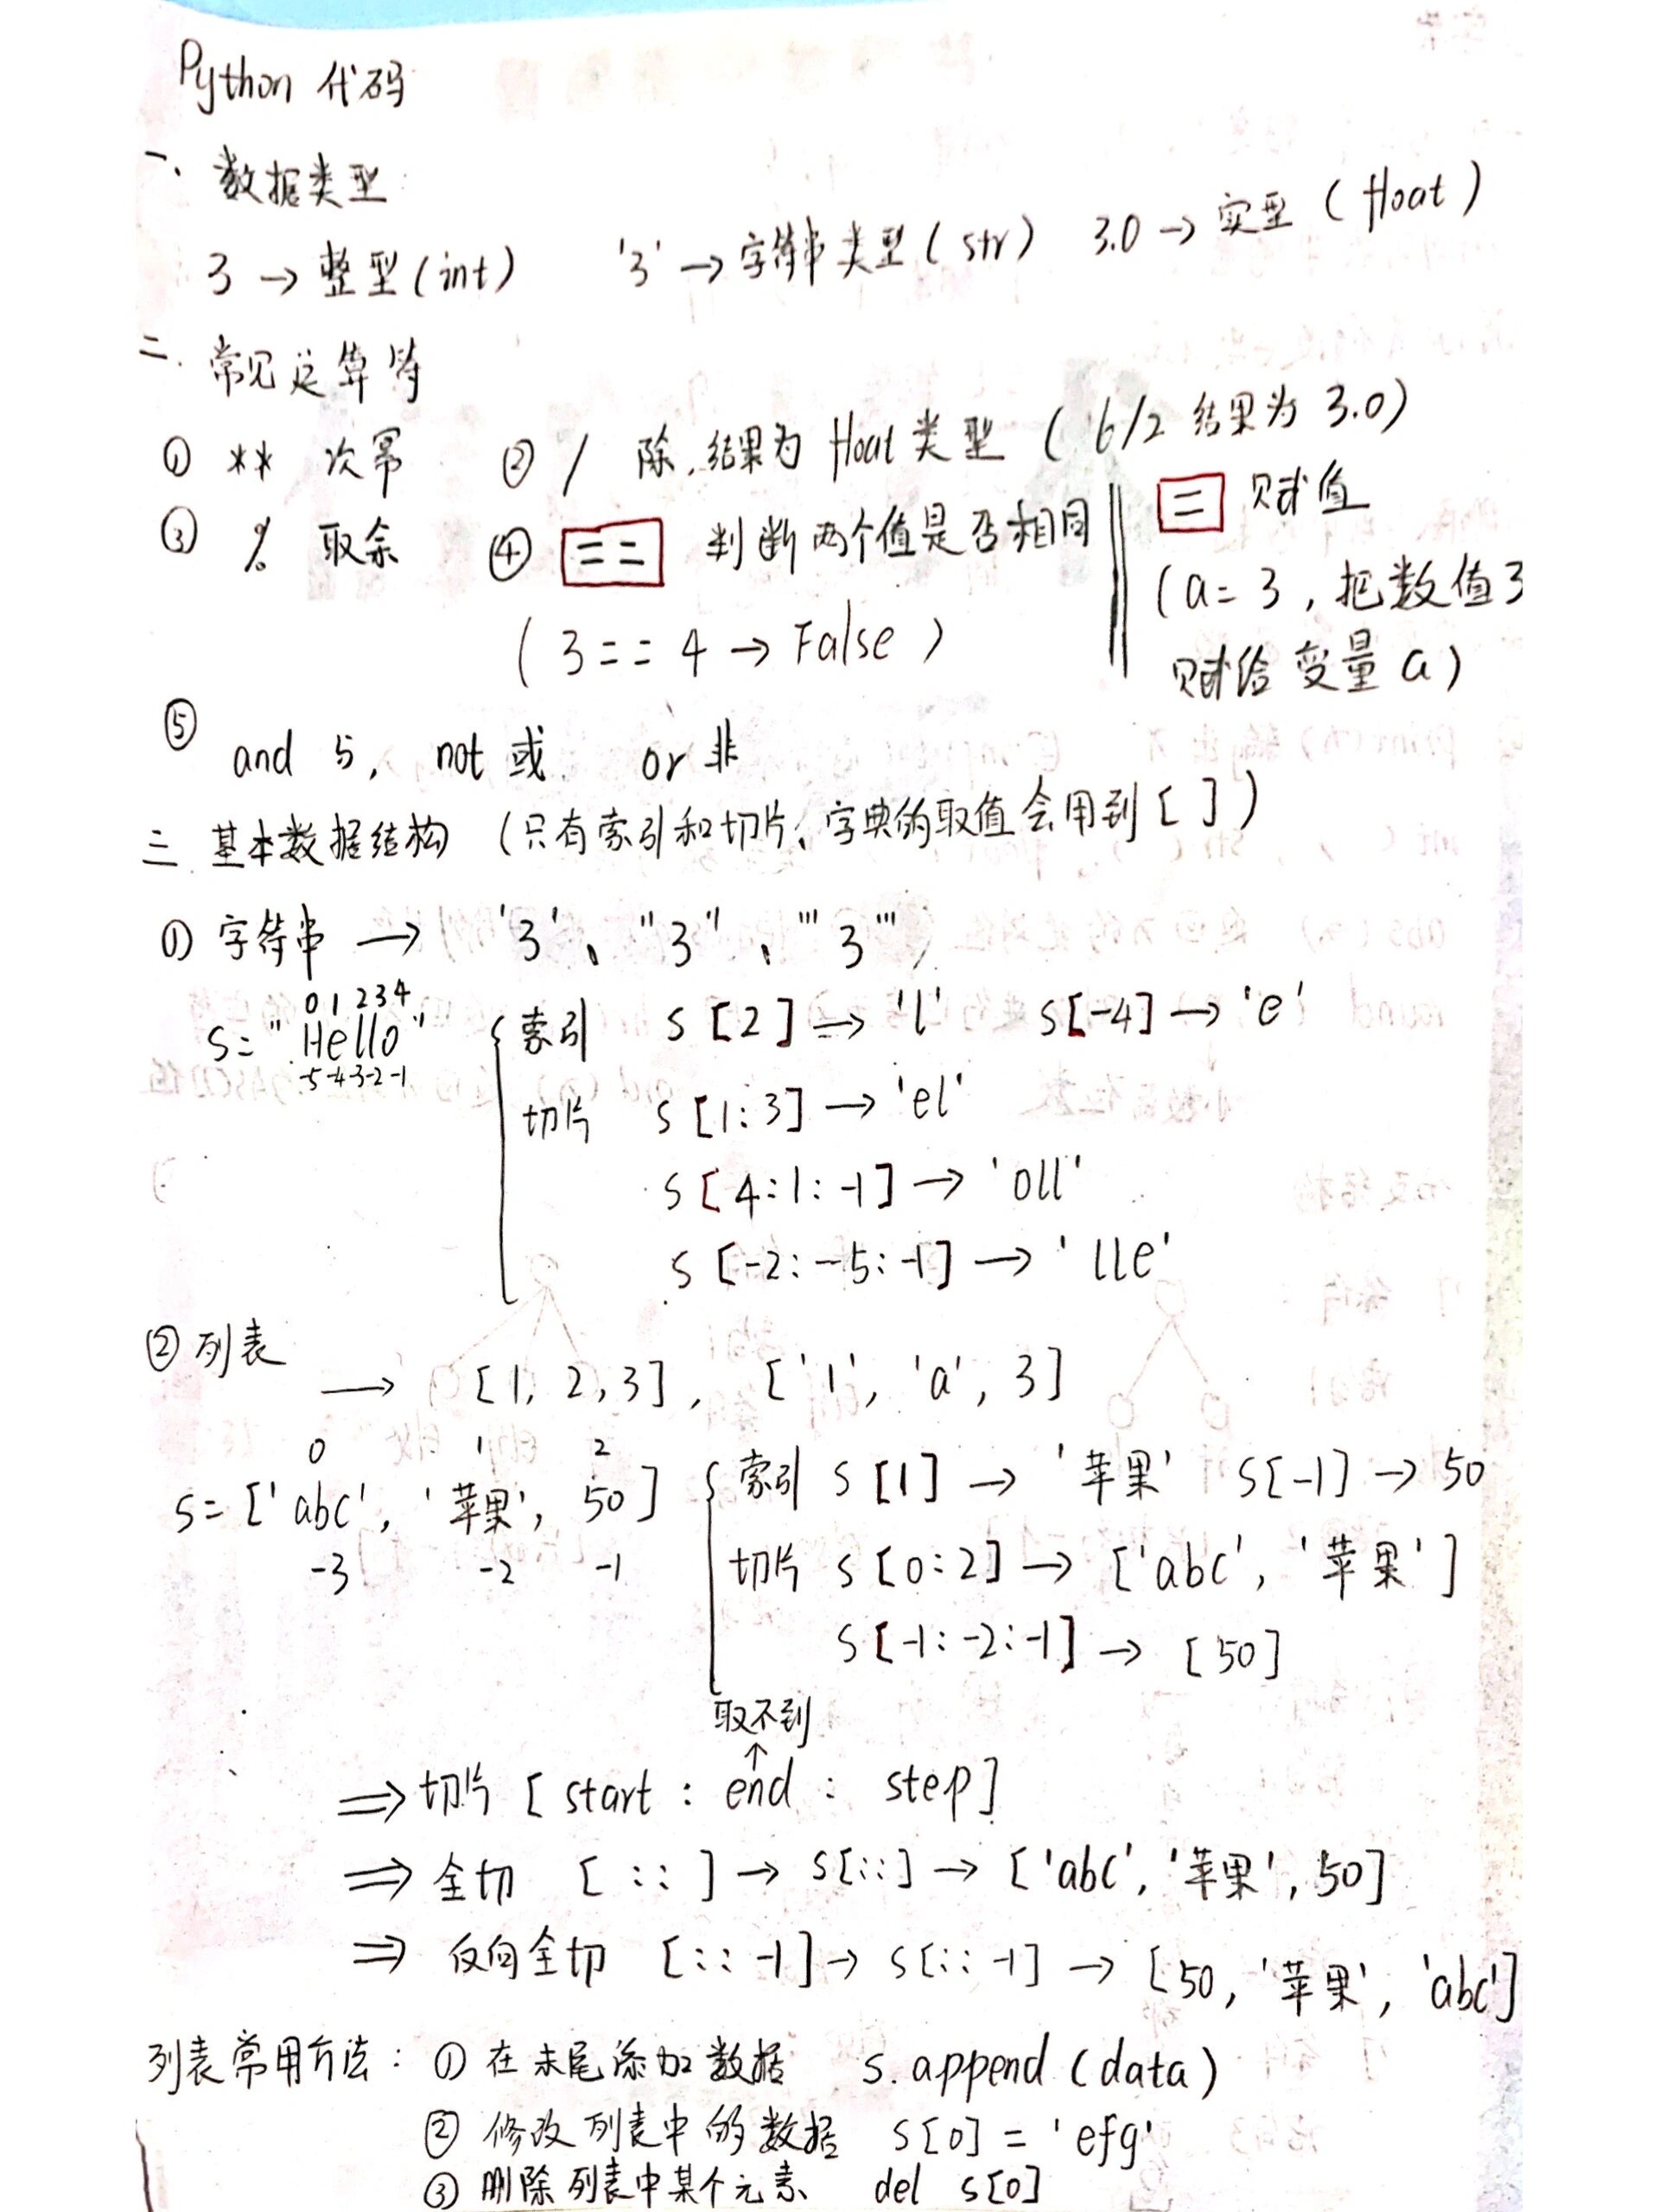 Python 代码
一、数据类型
3 → 整型(int)  '3' → 字符串类型(str)  3.0 → 实型(float)
二、常见运算符
① ** 次幂  ② / 除,结果为 float 类型 (6/2 结果为 3.0)
③ % 取余  ④ == 判断两个值是否相同  = 赋值
(3 == 4 → False)  (a = 3, 把数值3
赋给变量 a)
⑤ and 与, not 或  or 非
三、基本数据结构 (只有索引和切片、字典的取值会用到[ ])
① 字符串 → '3'、"3"、'''3'''
0 1 2 3 4
s = "Hello"  索引 s[2] → 'l'  s[-4] → 'e'
-5 -4 -3 -2 -1
切片 s[1:3] → 'el'
s[4:1:-1] → 'oll'
s[-2:-5:-1] → 'lle'
② 列表
→ [1, 2, 3], ['1', 'a', 3]
0 1 2
s = ['abc', '苹果', 50]  索引 s[1] → '苹果'  s[-1] → 50
-3 -2 -1
切片 s[0:2] → ['abc', '苹果']
s[-1:-2:-1] → [50]
取不到
↑
⇒ 切片 [start : end : step]
⇒ 全切 [ : : ] → s[::] → ['abc', '苹果', 50]
⇒ 反向全切 [::-1] → s[::-1] → [50, '苹果', 'abc']
列表常用方法: ① 在末尾添加数据  s.append(data)
② 修改列表中的数据  s[0] = 'efg'
③ 删除列表中某个元素  del s[0]